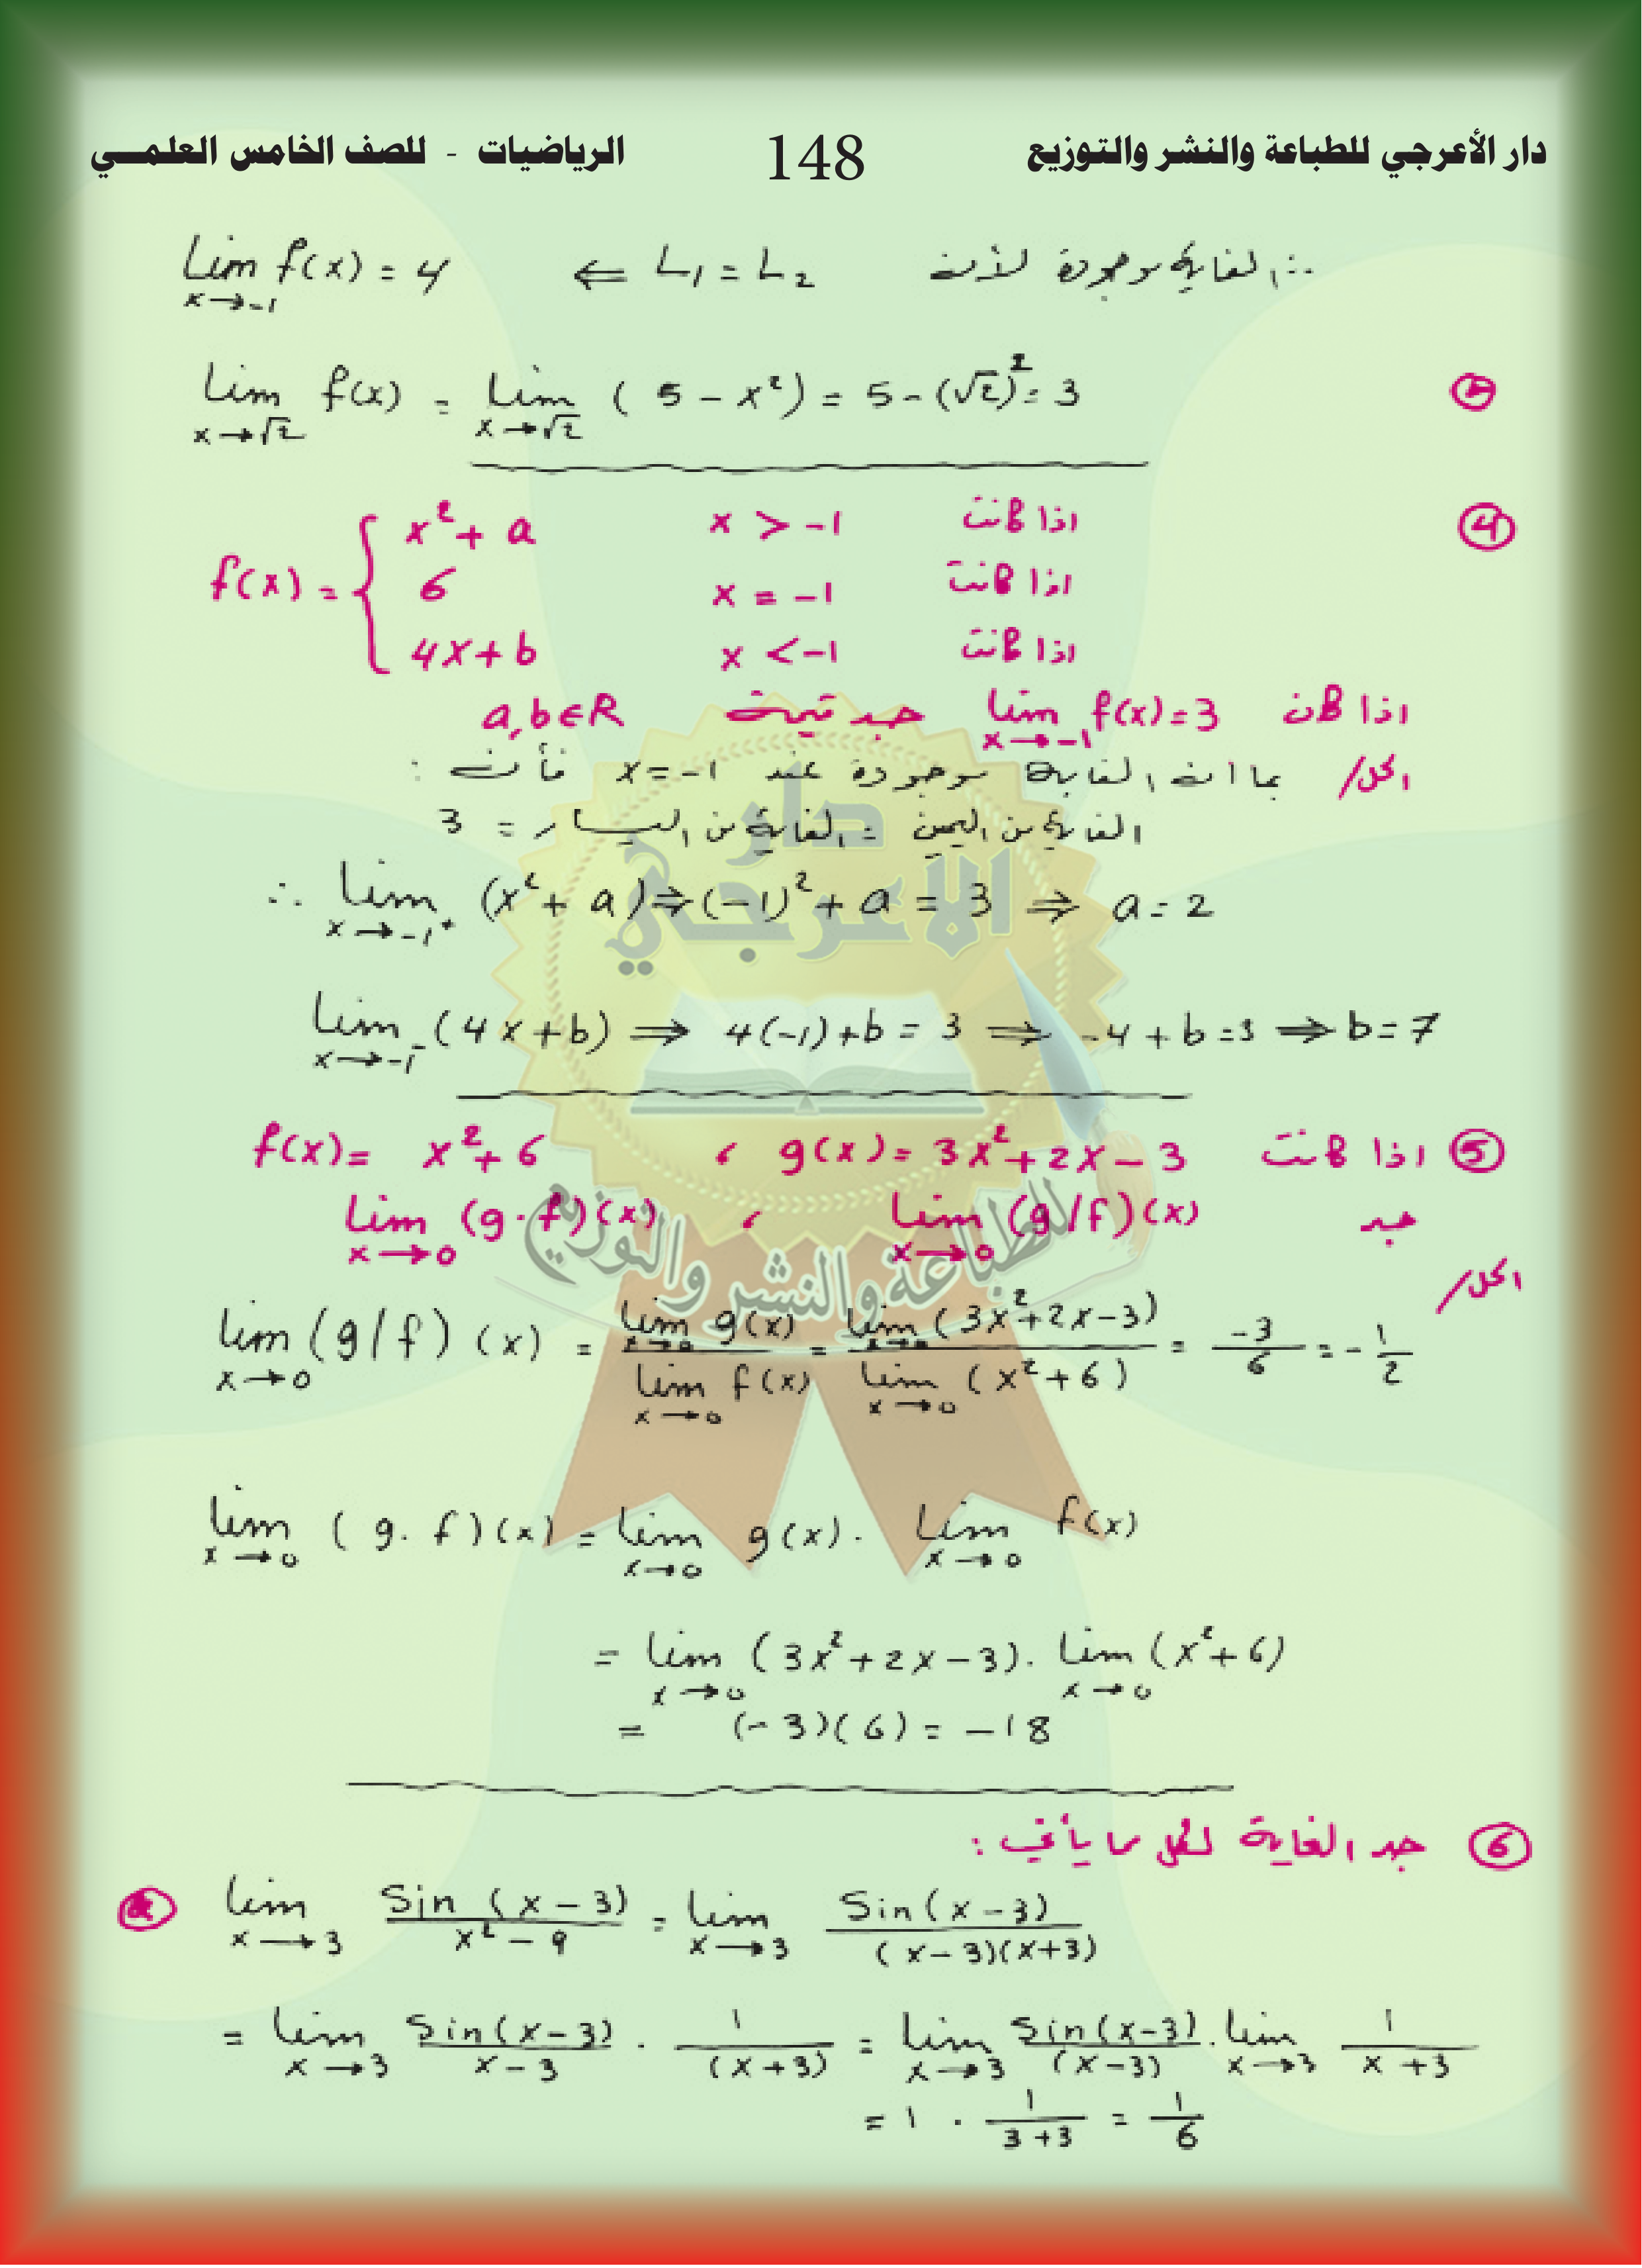 دار الأعرجي للطباعة والنشر والتوزيع 148 الرياضيات - للصف الخامس العلمــــي
∴ الغاية موجودة لأن L₁ = L₂ ⇐ lim x→-1 f(x) = 4
lim x→√2 f(x) = lim x→√2 (5 - x²) = 5 - (√2)² = 3
④ f(x) = { x² + a اذا كانت x > -1
6 اذا كانت x = -1
4x + b اذا كانت x < -1
اذا كان lim x→-1 f(x) = 3 جد قيمت a, b ∈ R
الحل/ بما ان الغاية موجودة عند x = -1 فأن :
الغاية من اليمين = الغاية من اليسار = 3
∴ lim x→-1⁺ (x² + a) ⇒ (-1)² + a = 3 ⇒ a = 2
lim x→-1⁻ (4x + b) ⇒ 4(-1) + b = 3 ⇒ -4 + b = 3 ⇒ b = 7
⑤ اذا كانت f(x) = x² + 6 ، g(x) = 3x² + 2x - 3
جد lim x→0 (g/f)(x) ، lim x→0 (g·f)(x)
الحل/
lim x→0 (g/f)(x) = lim x→0 g(x) / lim x→0 f(x) = lim x→0 (3x² + 2x - 3) / lim x→0 (x² + 6) = -3/6 = -1/2
lim x→0 (g·f)(x) = lim x→0 g(x) · lim x→0 f(x)
= lim x→0 (3x² + 2x - 3) · lim x→0 (x² + 6)
= (-3)(6) = -18
⑥ جد الغاية لكل ما يأتي :
lim x→3 Sin(x - 3) / x² - 9 = lim x→3 Sin(x - 3) / (x - 3)(x + 3)
= lim x→3 Sin(x - 3) / x - 3 · 1 / (x + 3) = lim x→3 Sin(x - 3) / (x - 3) · lim x→3 1 / x + 3
= 1 · 1 / 3 + 3 = 1/6
دار
الاعرجي
للطباعة والنشر والتوزيع